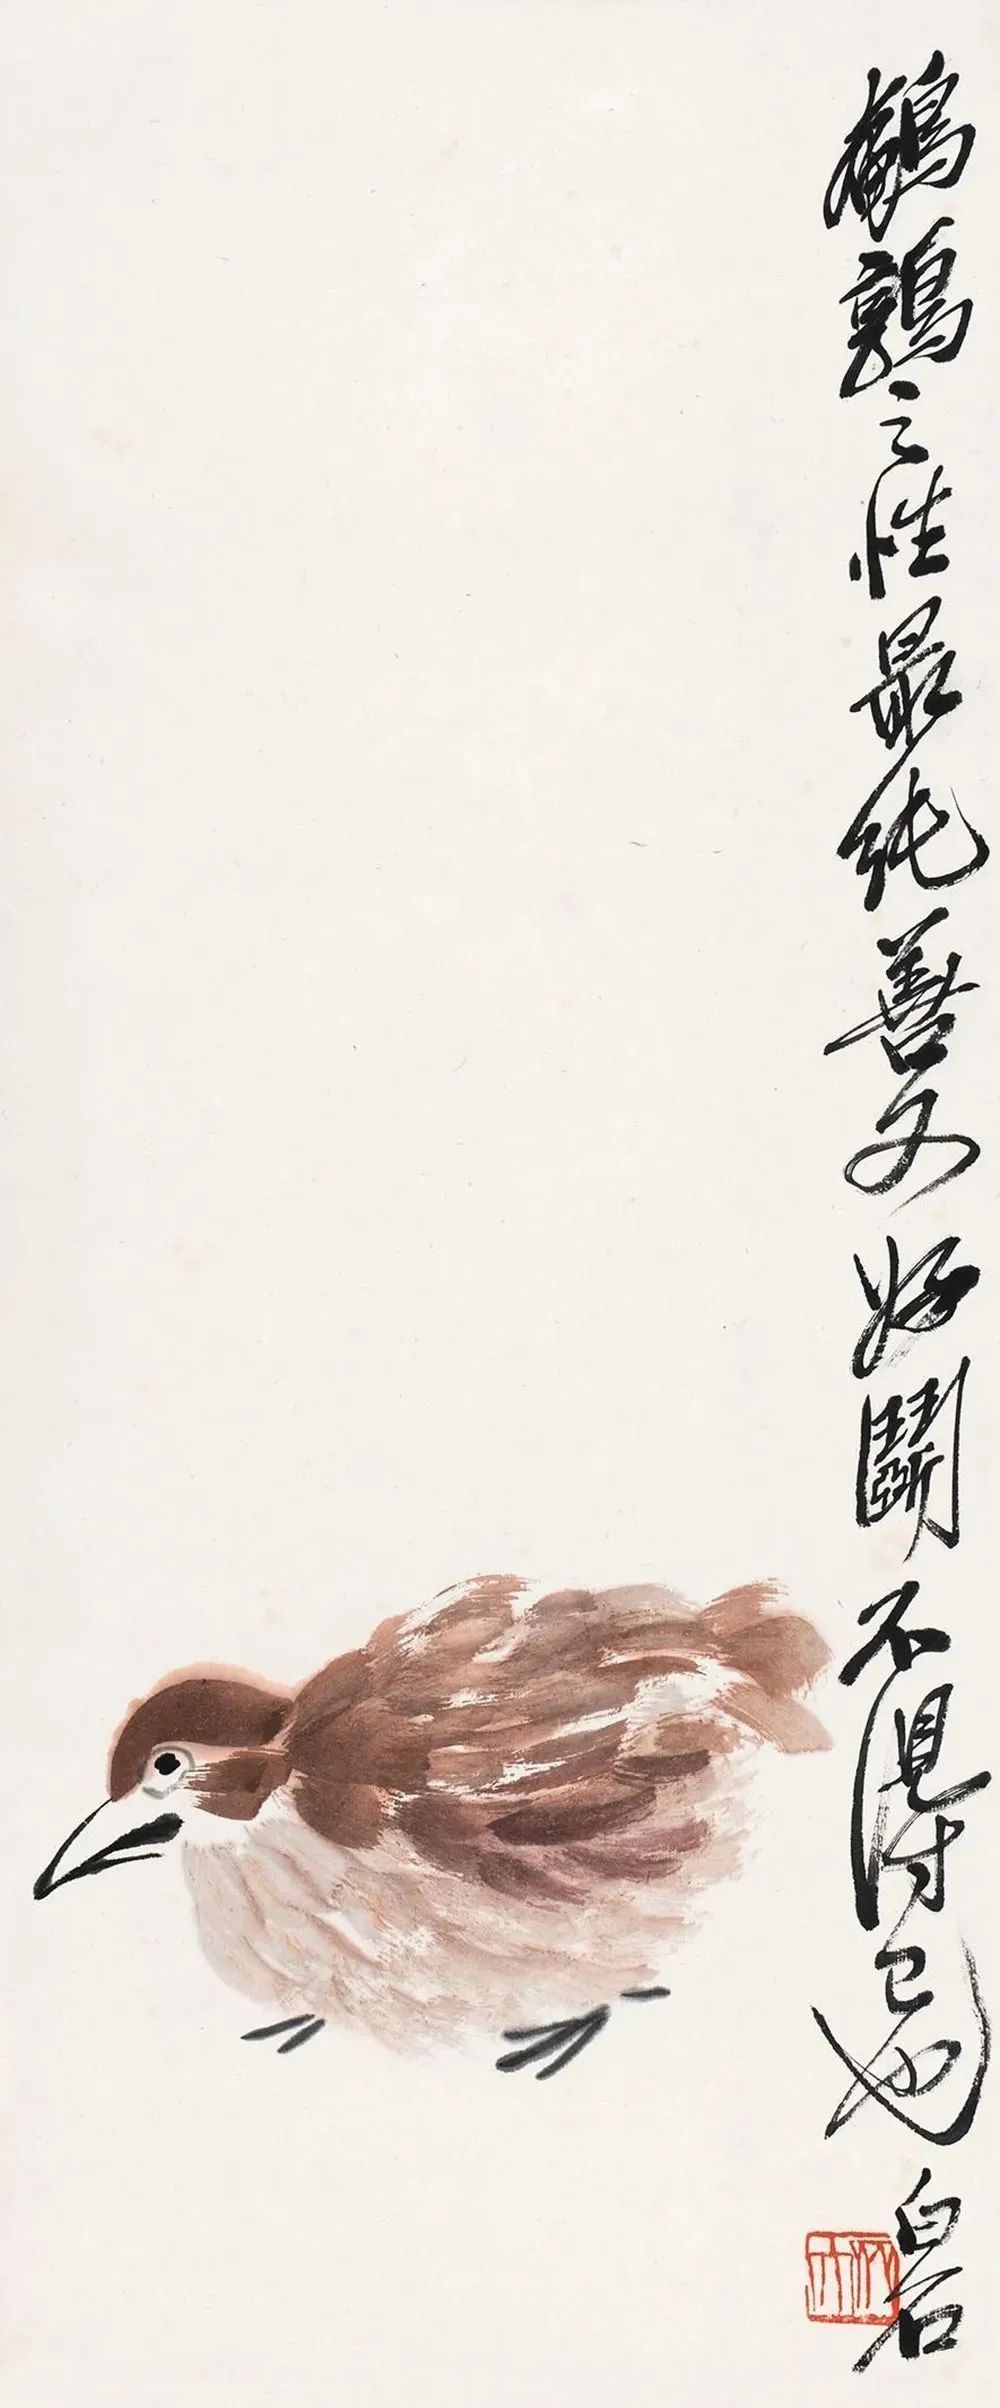 鵪鶉之性最純善又好鬬不得已也
白石